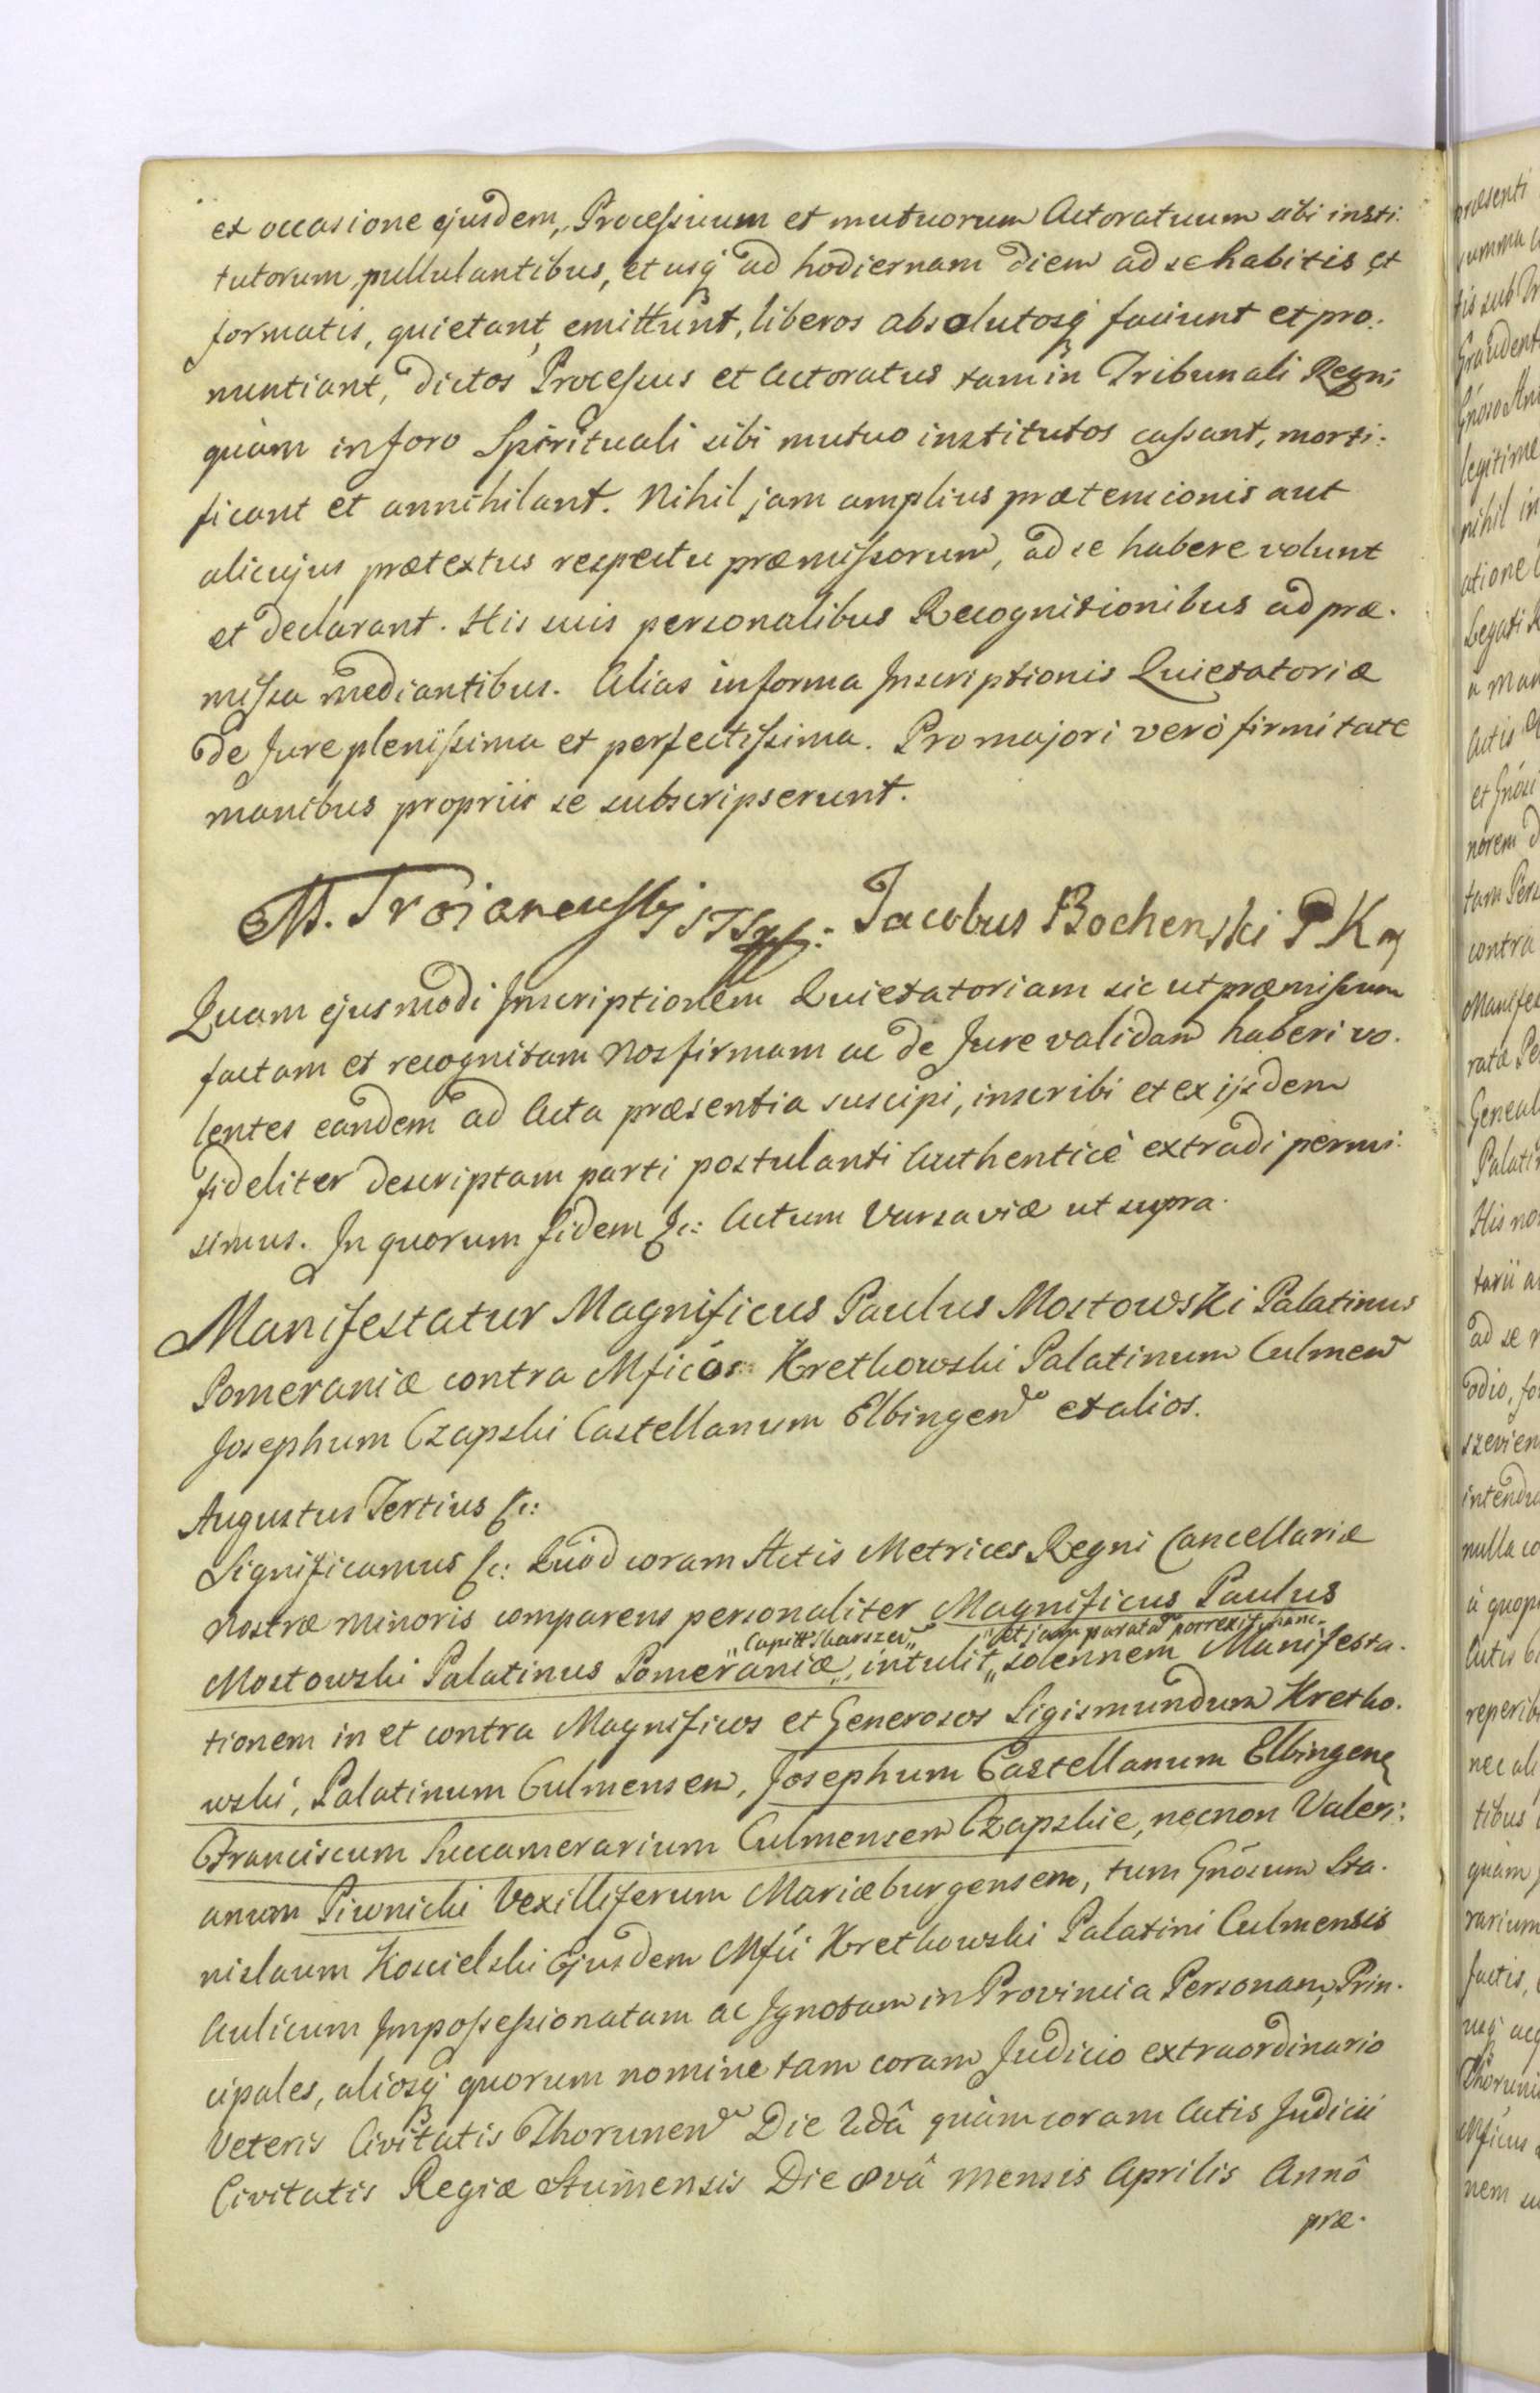 et occasione ejusdem, Processuum et mutuorum Actoratuum sibi insti:
tutorum, pullulantibus, et usq́ ad hodiernam diem ad se habitis et
formatis, quietant, emittunt, liberos absolutosq́ faciunt et pro:
nuntiant, dictos Processus et Actoratus tam in Tribunali Regni
quàm in foro Spirituali sibi mutuo institutos cassant, morti:
ficant et annihilant. Nihil jam amplius prætensionis aut
alicujus prætextus respectu præmissorum, ad se habere volunt
et declarant. His suis personalibus Recognitionibus ad præ.
missa mediantibus. Alias in forma Inscriptionis Quietatoriæ
de Jure plenissima et perfectissima. Pro majori verò firmitate
manibus propriis se subscripserunt.
M. Troianowski Jacobus Bochenski P K
Quam ejusmodi Inscriptionem Quietatoriam sic ut præmissum
factam et recognitam Nos firmam ac de Jure validam haberi vo.
lentes eandem ad Acta præsentia suscipi, inscribi et ex ijsdem
fideliter descriptam parti postulanti Authenticè extradi permi:
simus. In quorum fidem &c: Actum Varsaviæ ut supra.
Manifestatur Magnificus Paulus Mostowski Palatinus
Pomeraniæ contra Mficos Kretkowski Palatinum Culmen
Josephum Czapski Castellanum Elbingen et alios.
Augustus Tertius &c:
Significamus &c: Quod coram Actis Metrices Regni Cancellariæ
Nostræ minoris comparens personaliter Magnificus Paulus
et jam parata porrexit hanc
Mostowski Palatinus Pomeraniæ, intulit solennem Manifesta.
tionem in et contra Magnificos et Generosos Sigismundum Kretko.
wski, Palatinum Culmensem, Josephum Castellanum Elbingen
Franciscum Succamerarium Culmensem Czapskie, necnon Valeri:
anum Piwnicki Vexilliferum Mariæburgensem, tum Gnosum Sta.
nislaum Koscielski Ejusdem Mfci Kretkowski Palatini Culmensis
Aulicum Impossessionatam ac Ignotam in Provincia Personam, Prin.
cipales, aliosq́ quorum nomine tam coram Judicio extraordinario
Veteris Civitatis Thorunen Die 2dâ quàm coram Actis Judicii
Civitatis Regiæ Stumensis Die 8vâ mensis Aprilis Annô
præ.